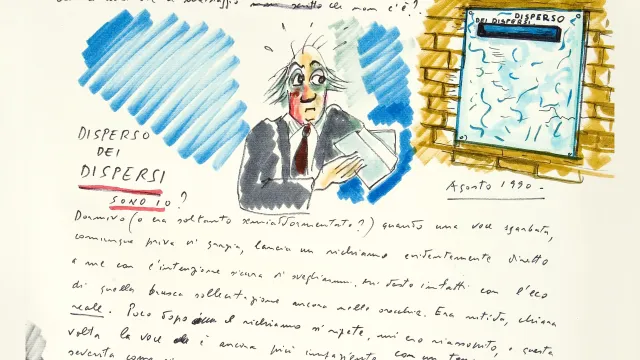 messaggio scritto che non c'è?
DISPERSO
DEI DISPERSI
DISPERSO
DEI
DISPERSI
SONO IO?
Agosto 1990.-
Dormivo (o ero soltanto semiaddormentato?) quando una voce sgarbata,
comunque priva di grazia, lancia un richiamo evidentemente diretto
a me con l'intenzione sicura di svegliarmi. Mi desto infatti con l'eco
di quella brusca sollecitazione ancora nelle orecchie. Era nitida, chiara
reale. Poco dopo il richiamo si ripete, mi ero riassopito, e questa
volta la voce è ancora più impaziente con un
severità come